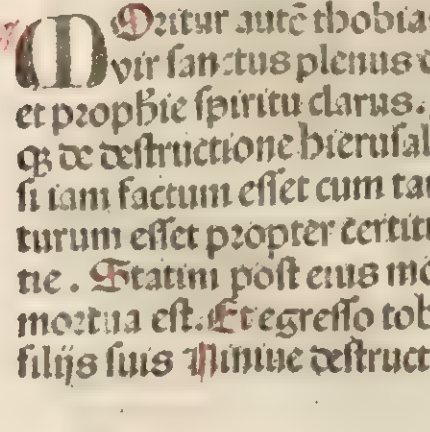 MOritur autē thobia
vir sanctus plenus
et prophie spiritu clarus.
qꝫ de destructione hierusal
si iam factum esset cum ta
turum esset propter certit
tie. Statim post eius mo
mortua est. Et egresso tob
filijs suis Niniue destruct